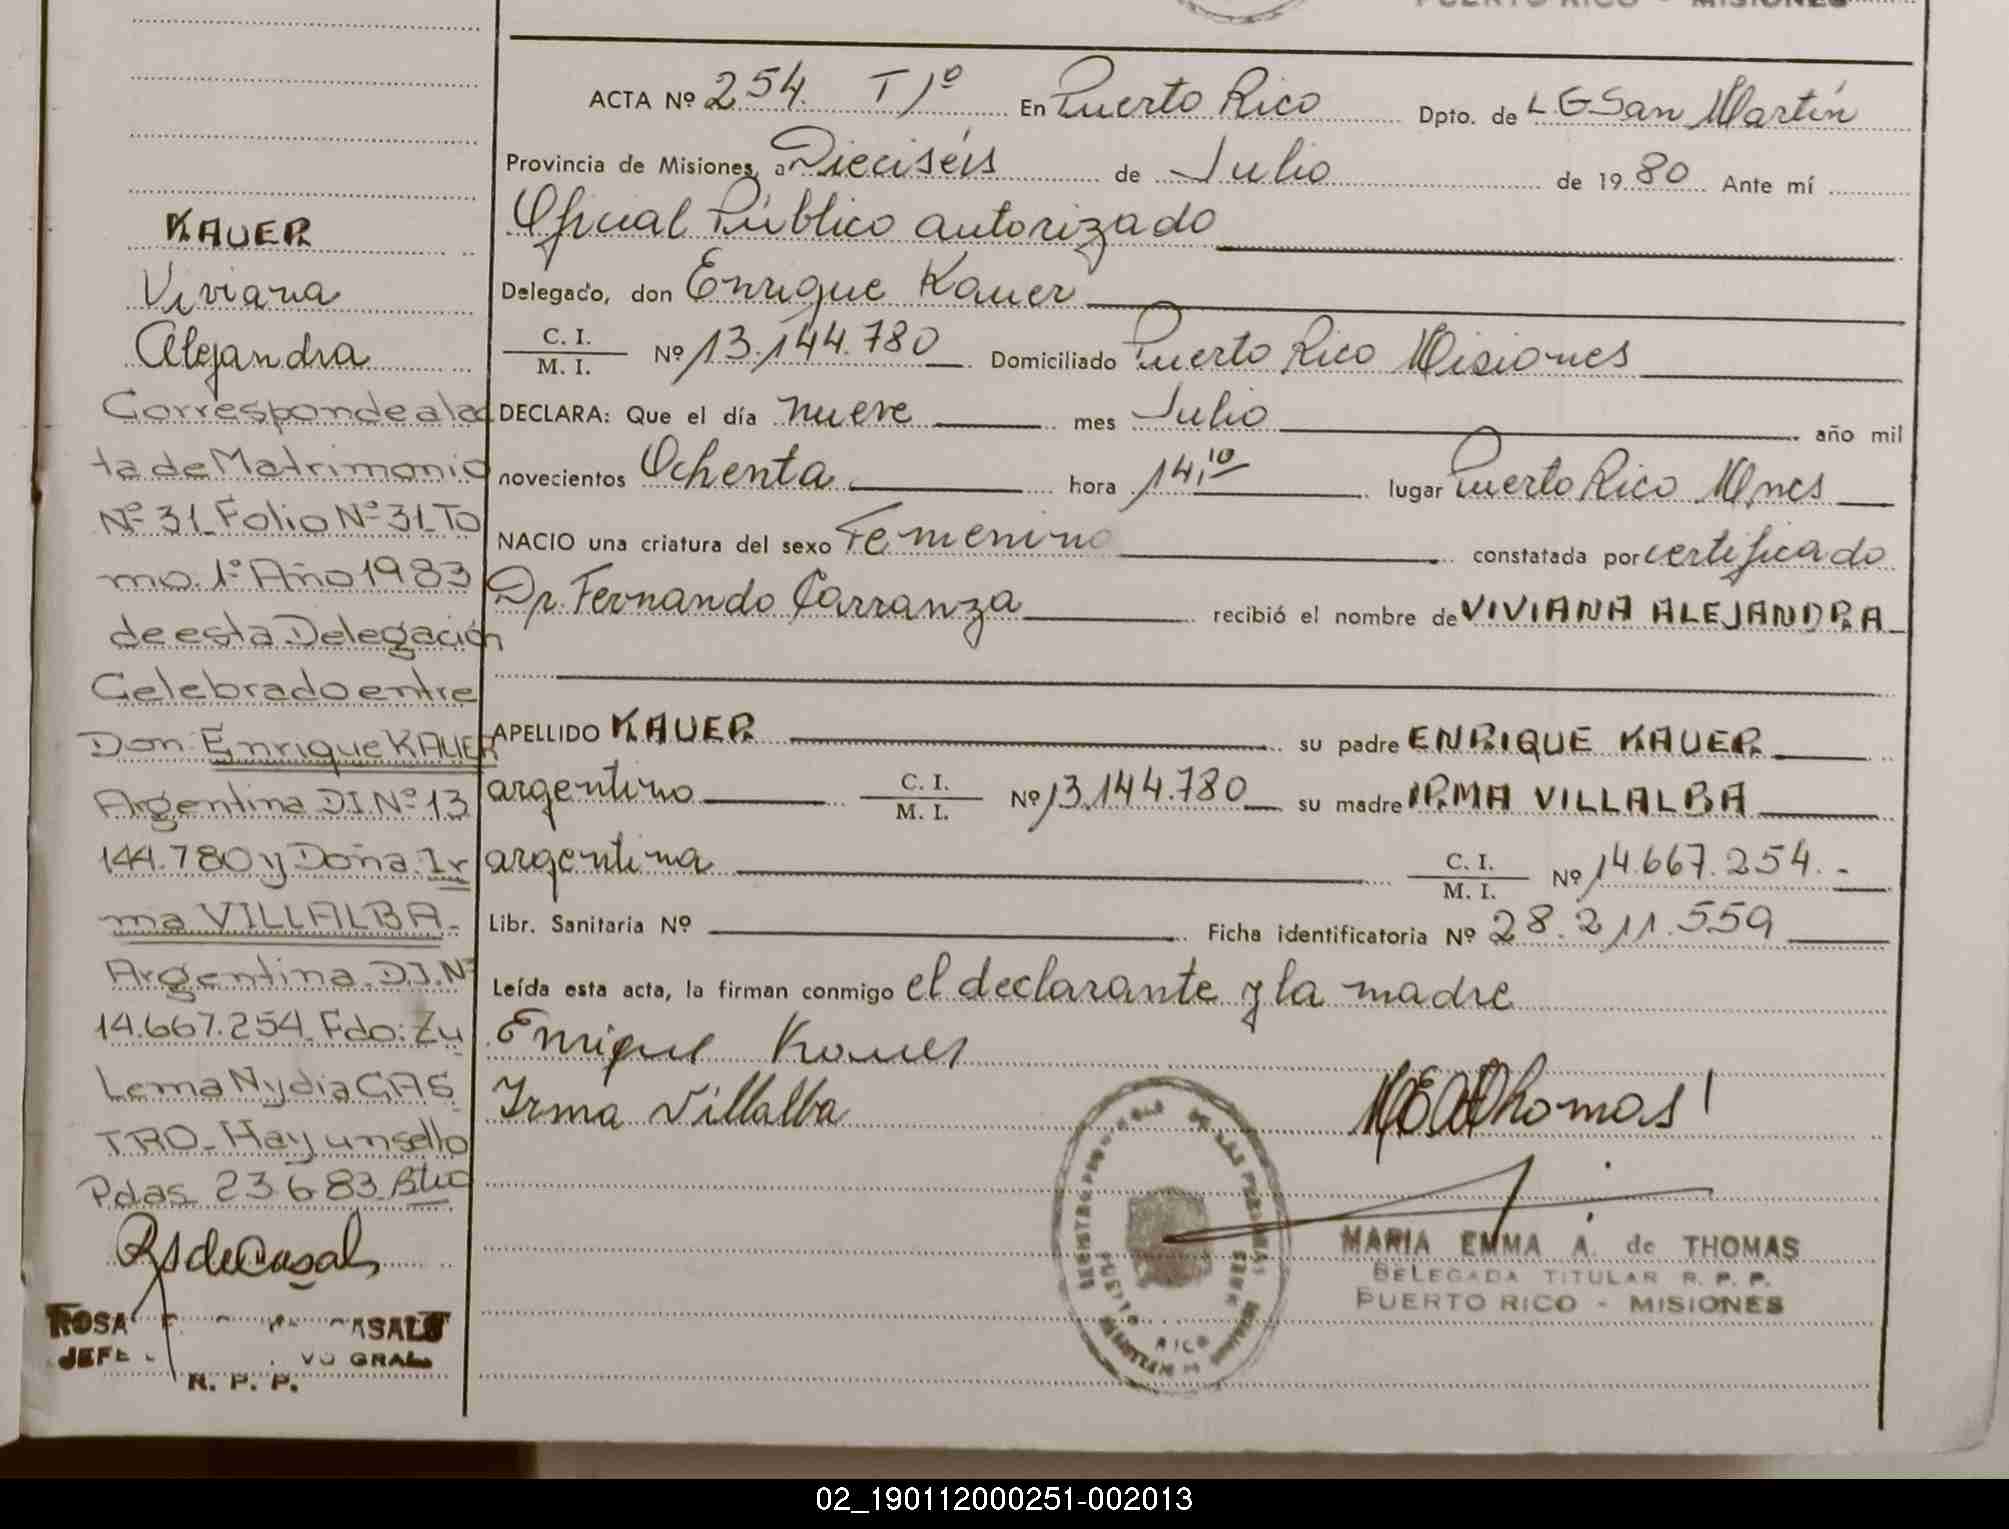 PUERTO RICO - MISIONES
ACTA Nº 254. Tº 1º En Puerto Rico Dpto. de L G San Martín
Provincia de Misiones, a Dieciséis de Julio de 1980 Ante mí
Oficial Público autorizado
Delegado, don Enrique Kauer
C. I. / M. I. Nº 13.144.780 Domiciliado Puerto Rico Misiones
DECLARA: Que el día nueve mes Julio año mil
novecientos Ochenta hora 14,10 lugar Puerto Rico Mnes
NACIO una criatura del sexo Femenino constatada por certificado
Dr. Fernando Carranza recibió el nombre de VIVIANA ALEJANDRA
APELLIDO KAUER su padre ENRIQUE KAUER
argentino C. I. / M. I. Nº 13.144.780 su madre IRMA VILLALBA
argentina C. I. / M. I. Nº 14.667.254.-
Libr. Sanitaria Nº Ficha identificatoria Nº 28.211.559
Leída esta acta, la firman conmigo el declarante y la madre
Enrique Kauer
Irma Villalba
MARIA EMMA A. de THOMAS
DELEGADA TITULAR R. P. P.
PUERTO RICO - MISIONES
KAUER
Viviana
Alejandra
Corresponde al ac
ta de Matrimonio
Nº 31 Folio Nº 31 To
mo. 1º Año 1983
de esta Delegación
Celebrado entre
Don Enrique KAUER
Argentina DI.Nº 13
144.780 y Doña Ir
ma VILLALBA.
Argentina. D.I. Nº
14.667.254. Fdo: Zu
Lema Nydia CAS
TRO. Hay un sello
Pdas. 23 6 83
ROSA CASALS
JEFE GRAL
R. P. P.
02_190112000251-002013